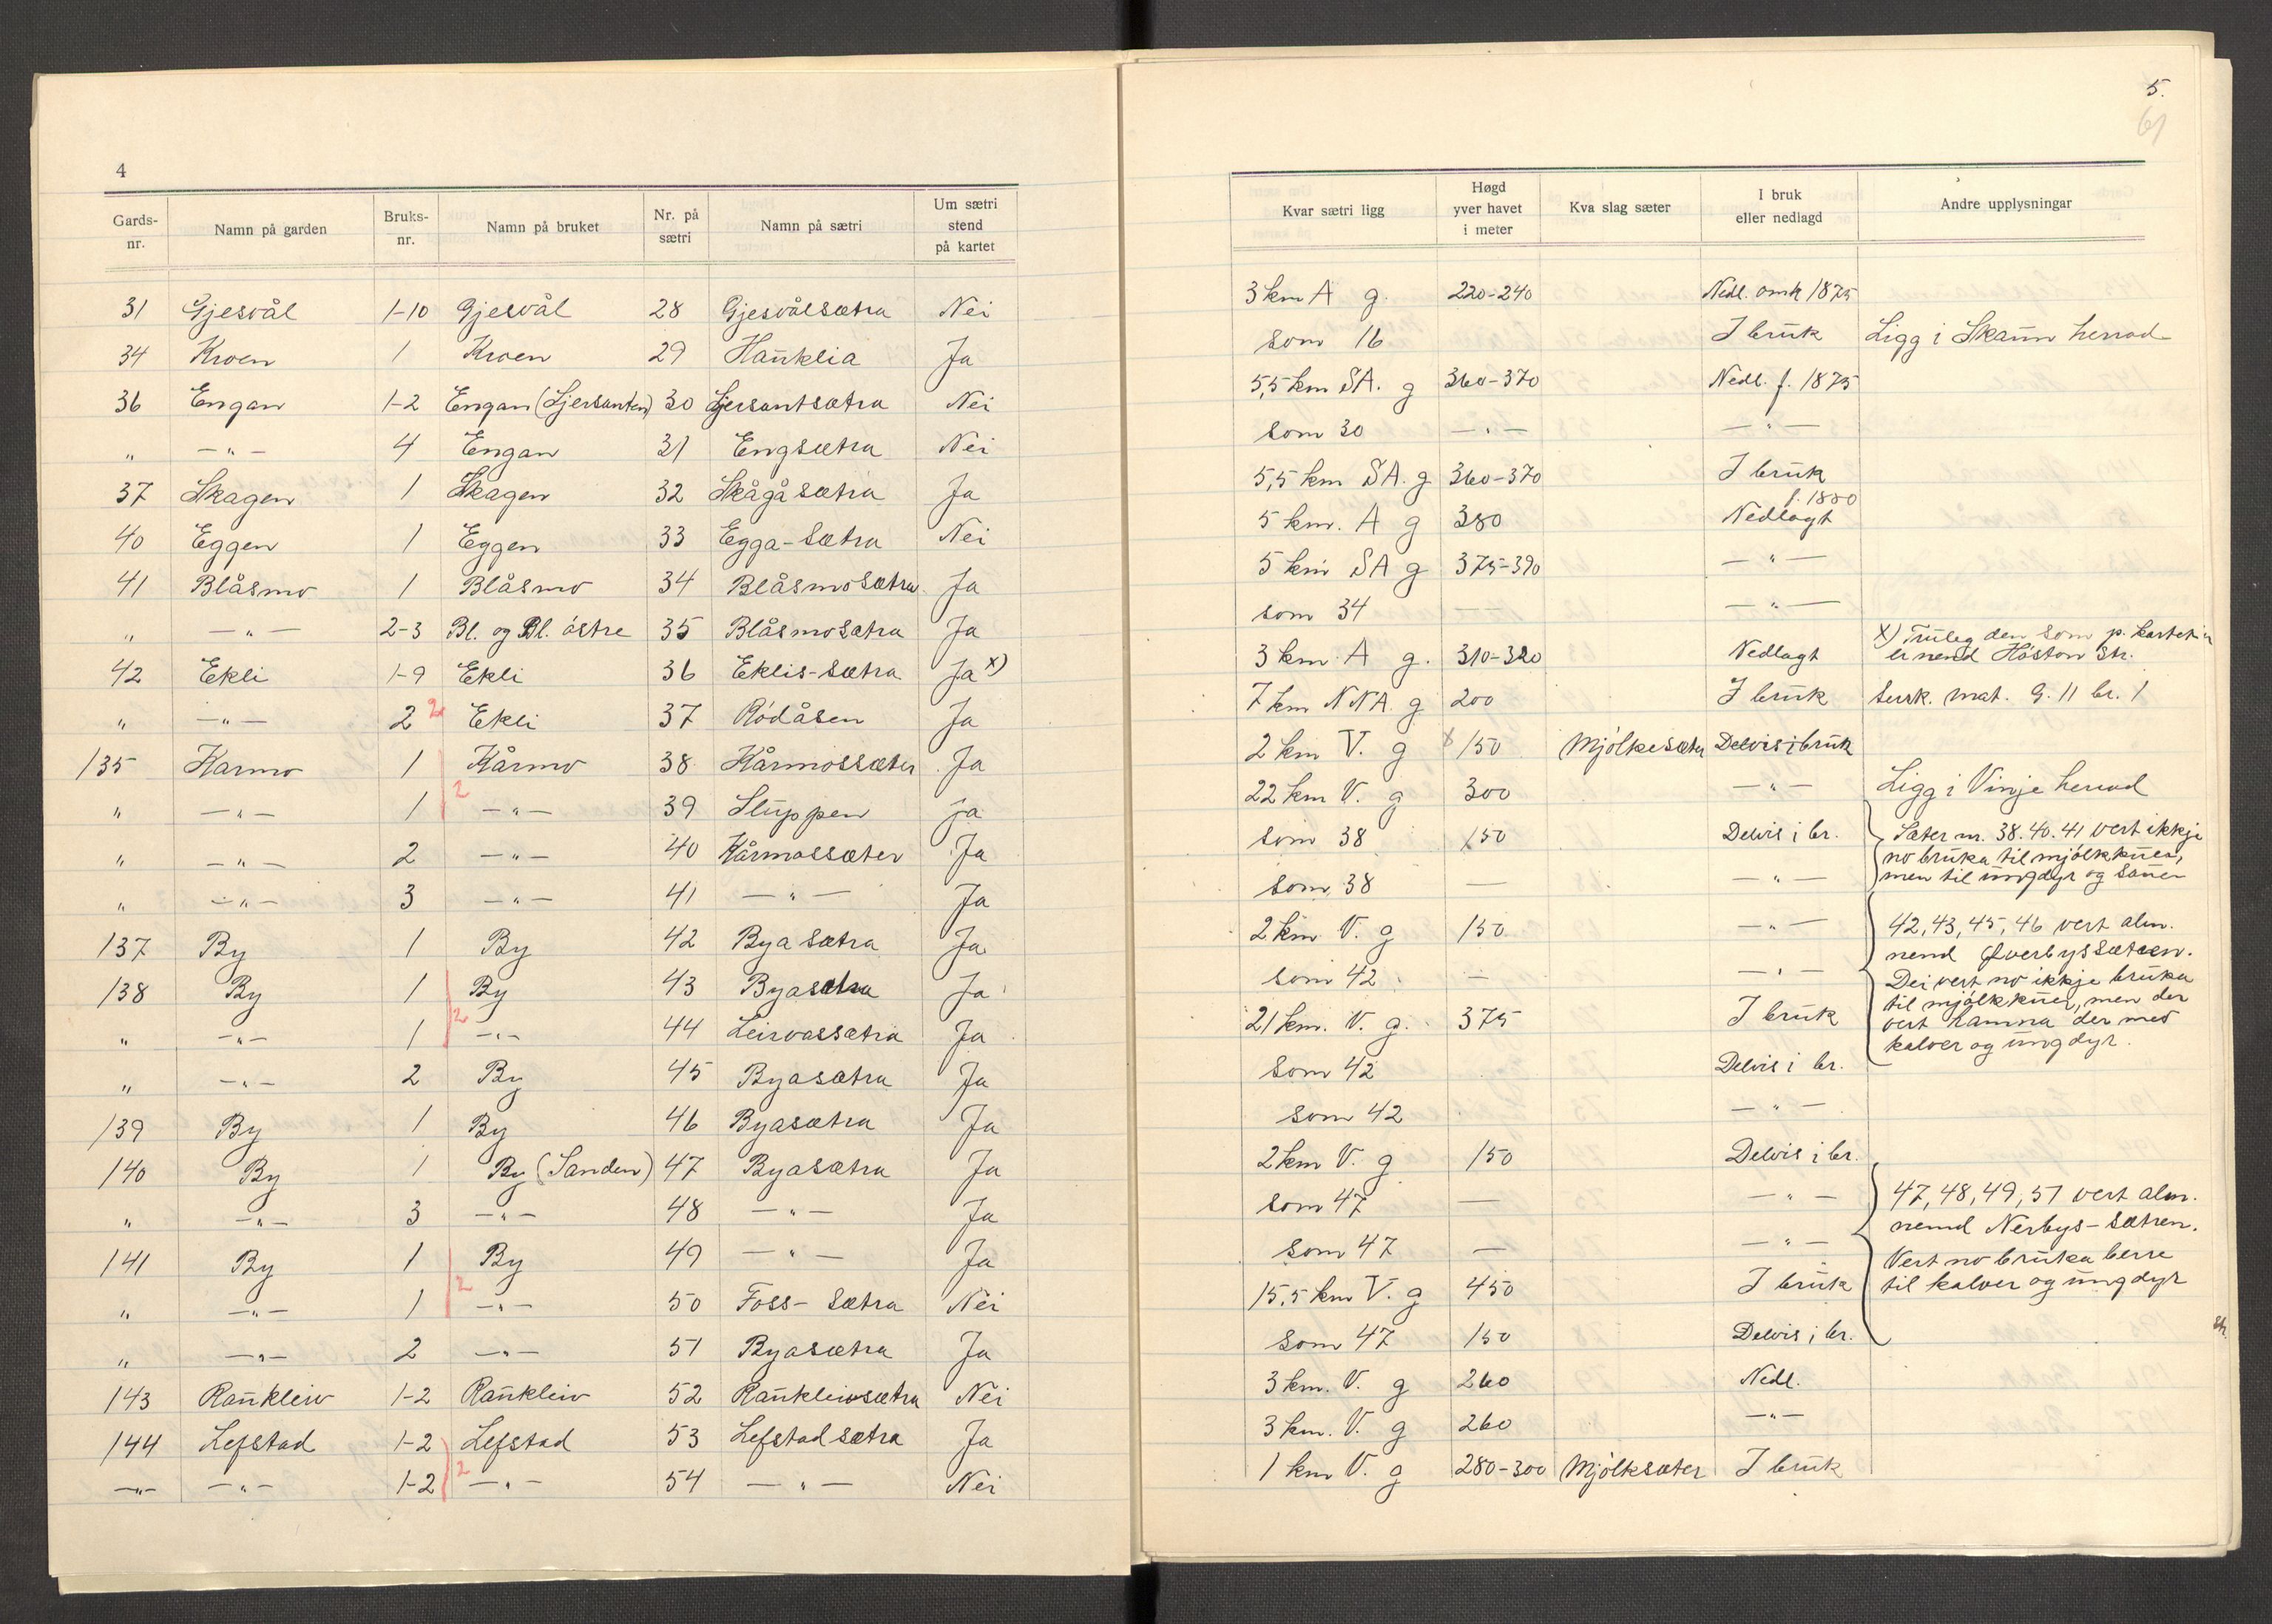 4
Gards-nr. Namn på garden Bruks-nr. Namn på bruket Nr. på sætri Namn på sætri Um sætri stend på kartet
31 Gjesvål 1-10 Gjesvål 28 Gjesvålsætra Nei
34 Kroen 1 Kroen 29 Haŭklia Ja
36 Engan 1-2 Engan (Ljersanten) 30 Ljersantsætra Nei
„ —„— 4 Engan 31 Engsætra Nei
37 Skagen 1 Skagen 32 Skågåsætra Ja
40 Eggen 1 Eggen 33 Egga-Sætra Nei
41 Blåsmo 1 Blåsmo 34 Blåsmosætra Ja
„ —„— 2-3 Bl. og Bl. östre 35 Blåsmosætra Ja
42 Ekli 1-9 Ekli 36 Eklis-Sætra Ja x)
„ —„— 2 2 Ekli 37 Rödåsen Ja
135 Karmo 1 Kårmo 38 Kårmossæter Ja
„ —„— 1 2 —„— 39 Slŭppen ja
„ —„— 2 —„— 40 Kårmossæter Ja
„ —„— 3 —„— 41 —„— Ja
137 By 1 By 42 Byasætra Ja
138 By 1 By 43 Byasætra Ja
„ —„— 1 2 —„— 44 Leirvassætra Ja
„ —„— 2 By 45 Byasætra Ja
139 By 1 By 46 Byasætra Ja
140 By 1 By (Sanden) 47 Byasætra Ja
„ —„— 3 —„— 48 —„— Ja
141 By 1 By 49 —„— Ja
„ —„— 1 2 —„— 50 Foss-Sætra Nei
„ —„— 2 —„— 51 Byasætra Ja
143 Raŭkleiv 1-2 Raŭkleiv 52 Raŭkleivsætra Nei
144 Lefstad 1-2 Lefstad 53 Lefstadsætra Ja
—„— —„— 1-2 2 —„— 54 —„— Nei
5.
61
Kvar sætri ligg Høgd yver havet i meter Kva slag sæter I bruk eller nedlagd Andre upplysningar
3 km A g. 220-240 Nedl. omk 1875
som 16 I brŭk Ligg i Skaŭn herrad
5,5 km SA. g 360-370 Nedl. f. 1875
som 30 —„— —„—
5,5 km SA. g 360-370 I brŭk
5 km. A g 380 Nedlagt f. 1880
5 km SA g 375-390 —„—
som 34 — —„—
3 km A g. 310-320 Nedlagt x) Trŭleg den som p. kartet er nemd Höston Str.
7 km NNA. g 200 I brŭk Sersk. mat. G. 11 br. 1
2 km V. g x 150 Mjölkesæter Delvis i brŭk
22 km V. g 300 —„— Ligg i Vinje herrad
som 38 150 Delvis i br. Sæter nr. 38. 40. 41 vert ikkje
som 38 — —„— no brŭka til mjölkkŭer,
men til ŭngdyr og saŭer
2 km V. g 150 —„— 42, 43, 45, 46 vert alm.
som 42 — —„— nemd Överbyssætren.
21 km. V. g. 375 I brŭk Dei vert no ikkje brŭka
som 42 Delvis i br. til mjölkkŭer, men der
som 42 —„— vert hamna der med
kalver og ŭngdyr.
2 km V. g 150 Delvis i br.
som 47 — —„— 47, 48, 49, 51 vert alm.
som 47 — —„— nemd Nerbys-Sætren.
15,5 km V. g 450 I brŭk Vert no brŭka berre
som 47 150 Delvis i br. til kalver og ŭngdyr
3 km. V. g 260 Nedl.
3 km. V. g 260 —„—
1 km V. g 280-300 Mjölksæter I brŭk